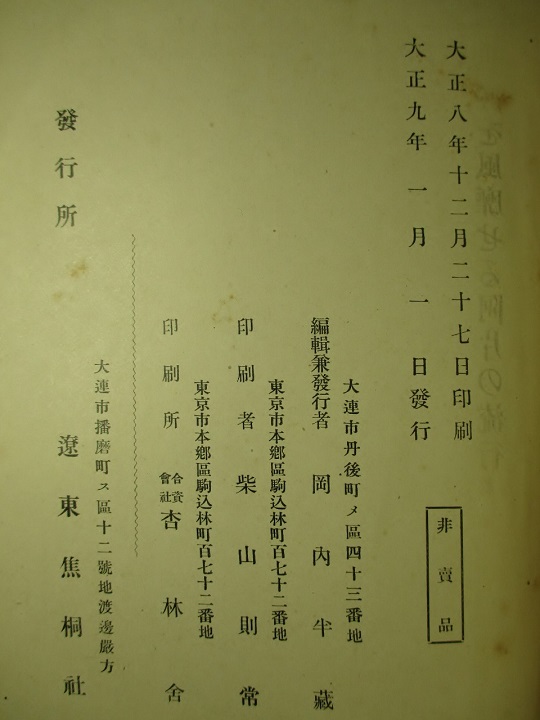 大正八年十二月二十七日印刷
大正九年一月一日發行
非賣品
大連市丹後町メ區四十三番地
編輯兼發行者 岡內半藏
東京市本鄉區駒込林町百七十二番地
印刷者 柴山則常
東京市本鄉區駒込林町百七十二番地
印刷所 合資會社 杏林舍
大連市播磨町ス區十二號地渡邊嚴方
發行所 遼東焦桐社